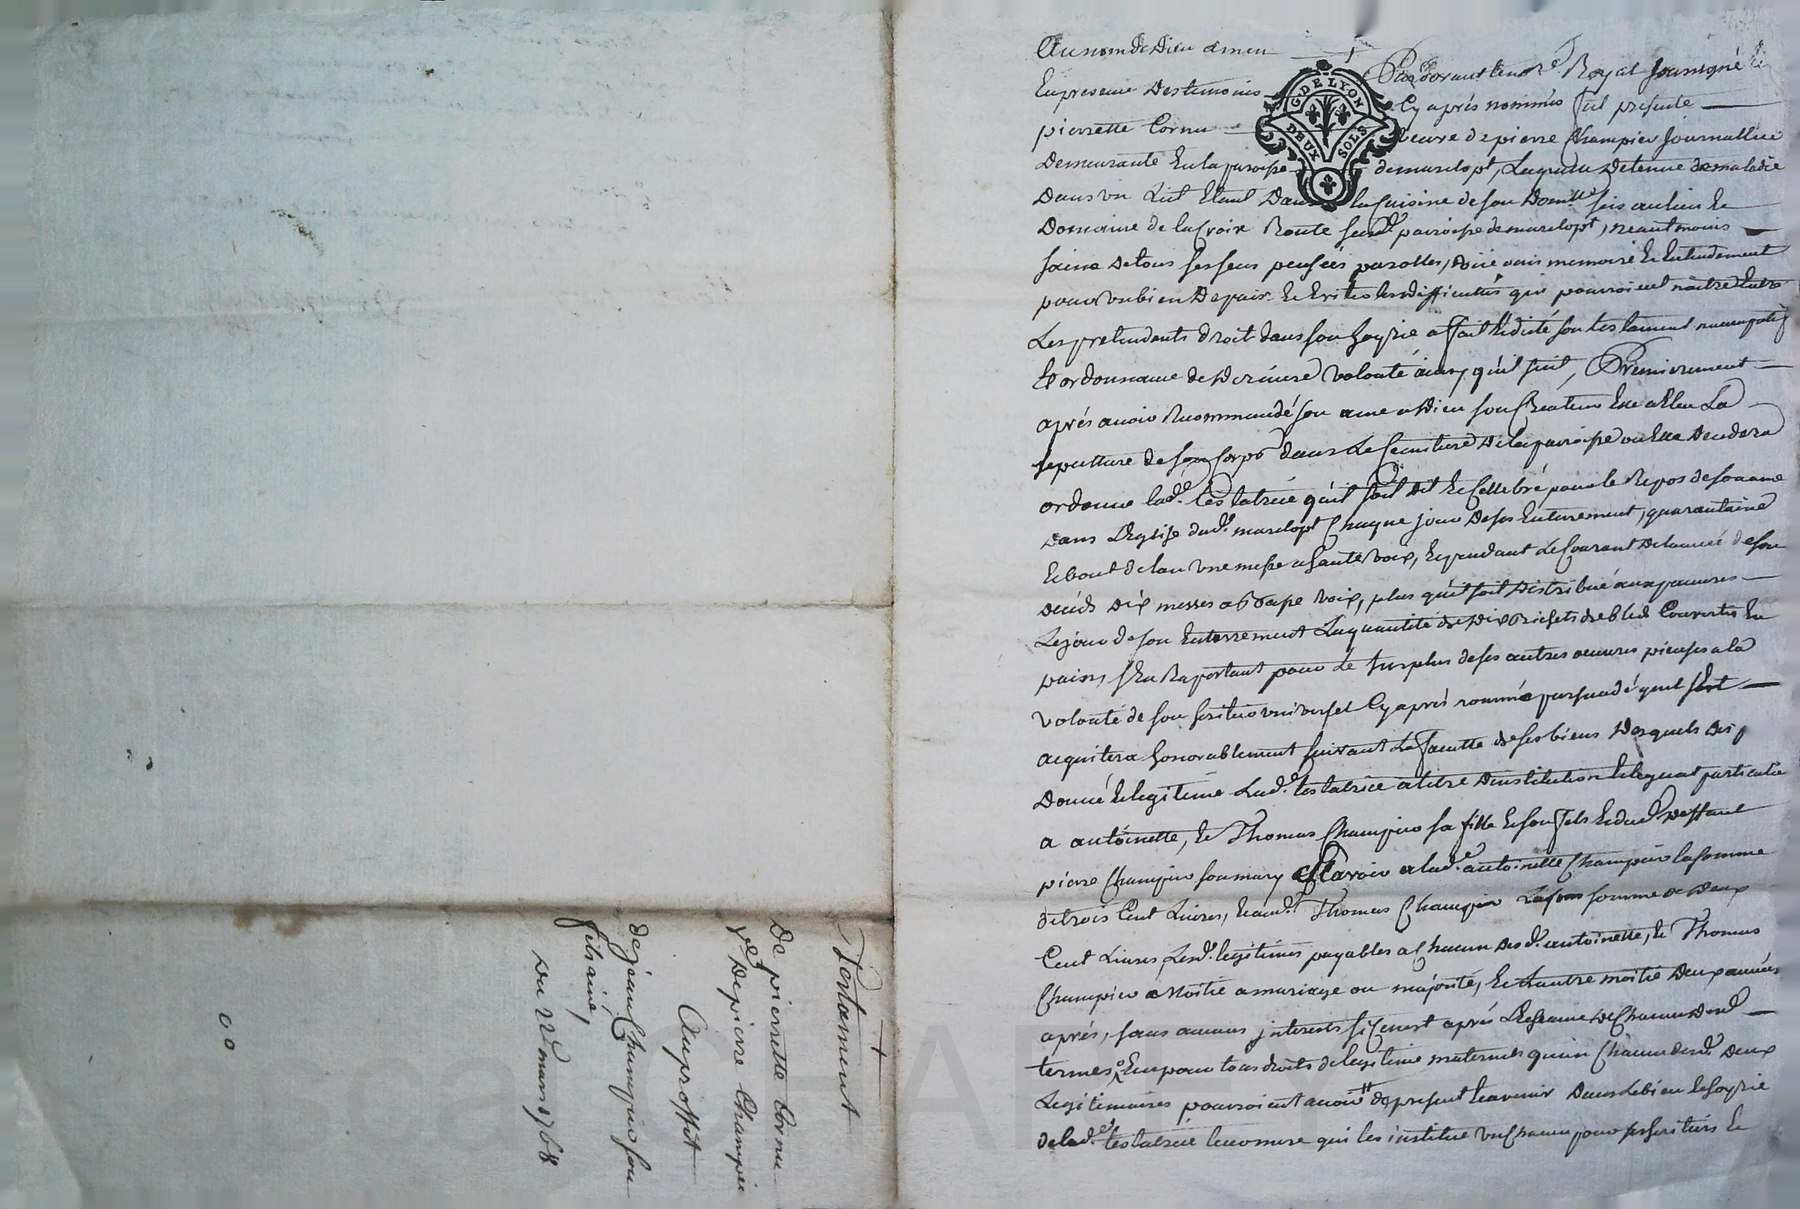 Au nom de Dieu amen
Pardevant le no.re Royal soussigné &
En presence des temoins Cy après nommés fut presente
G. DE LYON
DEUX SOLS
pierrette Cornu veuve de pierre Champier journallier
Demeurante En la paroisse de marclopt, Laquelle Detenue de maladie
Dans un Lit Etant Dans la Cuisine de son Dom.lle sis au lieu Et
Domaine de la Croix Route susd.e paroisse de marclopt, neantmoins
saine De tous ses sens pensées parolles, memoire Et Entendement
pour le bien De paix Et Eviter les difficultés qui pourroient naitre Entre
Les pretendants droit dans son hoyrie a fait Et dicté son testament nuncupatif
Et ordonnance de Derniere volonté ainsy qu'il suit, Premierement
après avoir Recommandé son ame a Dieu son Createur Elle a Eleu La
sepulture de son Corps dans Le Cemitiere De la paroisse ou Elle Decedera
ordonne lad.e testatrice qu'il soit Dit Et Cellebré pour le Repos de son ame
Dans L'Eglise dud.t marclopt Chaque jour De ses Enterrement, quarantaine
Et bout de l'an Une messe a haute voix, Et pendant Le Courant De l'année de son
Décéds Dix messes a basse voix, plus qu'il soit Distribué aux pauvres
Le jour de son Enterrement La quantité de Dix Bichets de bled Convertis En
pains, s'En Raportant pour Le surplus de ses autres oeuvres pieuses a la
volonté de son heritier universel Cy après nommé persuadé qu'il s'Est
acquitera honorablement suivant La faculté de ses biens Desquels
Donné Et legitime Lad.e testatrice a titre D'institution Et leguat particulier
a antoinette, Et Thomas Champier sa fille Et son fils Et dud.t Deffunt
pierre Champier son mary Sçavoir a lad.e antoinette Champier la somme
de trois Cent Livres, Et aud.t Thomas Champier La somme de Deux
Cent Livres Lesd. legitimes payables a Chacun Desd. antoinette, Et Thomas
Champier a Moitié a mariage ou majorité, Et L'autre moitié Deux années
après, sans aucuns interests si Ce n'est après L'Echeance De Chacun Desd.
termes, Et pour tous droits de legitime maternels qu'un Chacun desd. Deux
Legitimaires pourroient avoir de present Et avenir Dans Les bien Et hoyrie
de lad.e testatrice Et comme qui les institue Un Chacun pour ses heritiers Et
Testament
De pierrette Cornu
v.e De pierre Champier
Au proffit
de jean Champier son
fils ainé,
Du 22 mars 1768